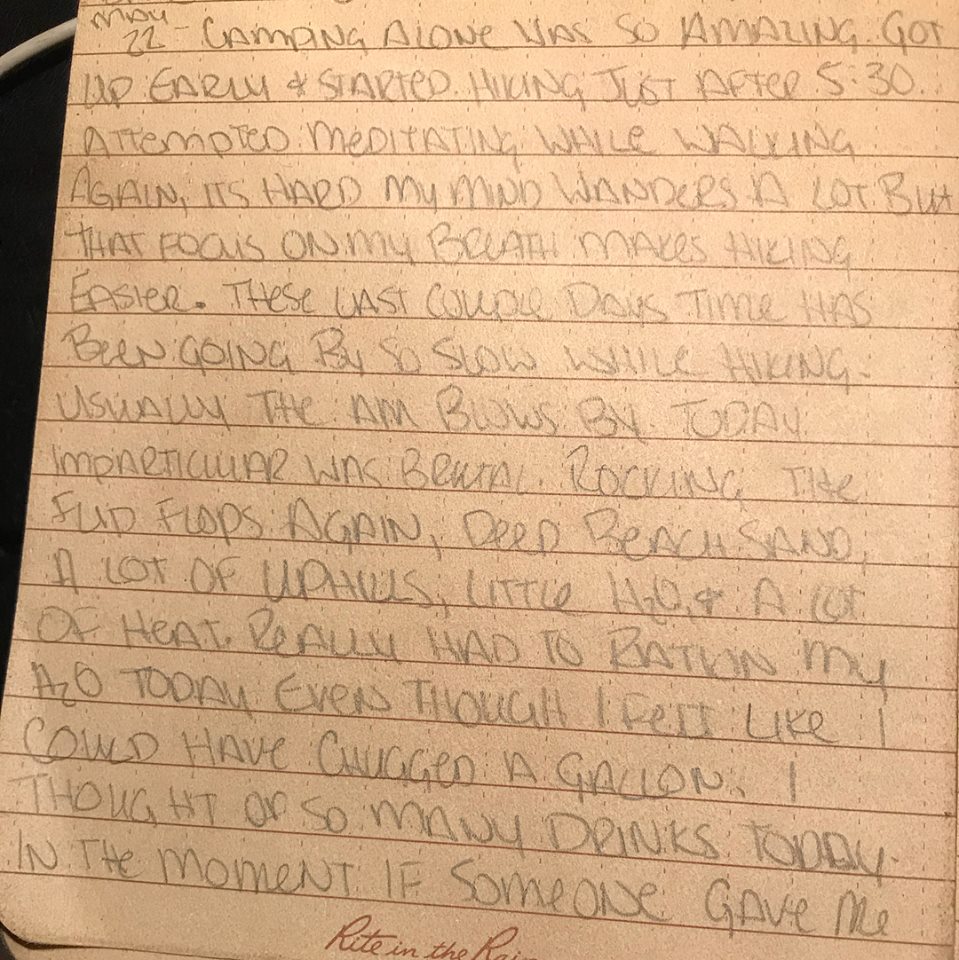 MAY
22 - CAMPING ALONE WAS SO AMAZING. GOT
UP EARLY & STARTED HIKING JUST AFTER 5:30.
ATTEMPTED MEDITATING WHILE WALKING
AGAIN, ITS HARD MY MIND WANDERS A LOT. BUT
THAT FOCUS ON MY BREATH MAKES HIKING
EASIER. THESE LAST COUPLE DAYS TIME HAS
BEEN GOING BY SO SLOW WHILE HIKING.
USUALLY THE AM BLOWS BY. TODAY
IMPARTICULAR WAS BRUTAL. ROCKING THE
FLIP FLOPS AGAIN, DEEP BEACH SAND,
A LOT OF UPHILLS, LITTLE H2O, & A LOT
OF HEAT. REALLY HAD TO RATION MY
H2O TODAY EVEN THOUGH I FELT LIKE I
COULD HAVE CHUGGED A GALLON. I
THOUGHT OF SO MANY DRINKS TODAY.
IN THE MOMENT IF SOMEONE GAVE ME
Rite in the Rain